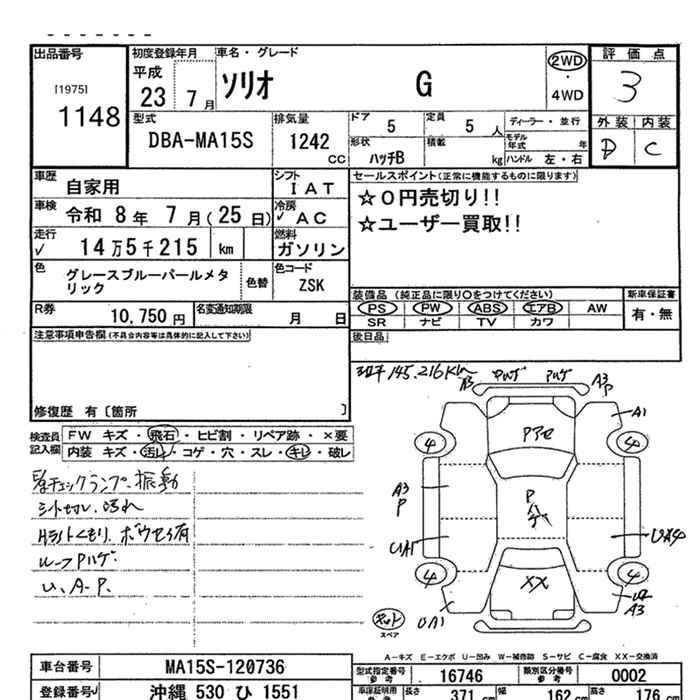 出品番号
[1975]
1148
初度登録年月
平成
23 7月
車名・グレード
ソリオ G
2WD
・
4WD
評価点
3
外装 内装
D C
型式
DBA-MA15S
排気量
1242
CC
ドア 5
定員 5 人
ディーラー・並行
形状
ハッチB
積載 kg
モデル年式 年
ハンドル 左・右
車歴 自家用
シフト
IAT
車検 令和 8年 7月(25日)
冷房
✓ AC
走行
✓ 14万5千215 km
燃料
ガソリン
色 グレースブルーパールメタリック
色替
色コード
ZSK
R券 10,750円
名変通知期限 月 日
セールスポイント(正常に機能するものに限ります)
☆0円売切り!!
☆ユーザー買取!!
装備品 (純正品に限り〇をつけてください)
PS PW ABS エアB AW
SR ナビ TV カワ
新車保証書
有・無
後日品
注意事項申告欄(不具合内容等は具体的に記入して下さい)
修復歴 有〔箇所 〕
検査員記入欄
FW キズ・飛石・ヒビ割・リペア跡・×要
内装 キズ・汚れ・コゲ・穴・スレ・キレ・破レ
チェックランプ、振動
シート切レ、汚れ
Hライトくもり、ボウセイ有
ルーフPハゲ
U、A-P、
145,216km
A3
Pハゲ
A3
P
A1
4
4
Pアセ
A3
P
P
ハゲ
UA1
UA4
4
4
XX
UA1
A3
キット
スペア
A-キズ E-エクボ U-凹み W-補修跡 S-サビ C-腐食 XX-交換済
車台番号 MA15S-120736
登録番号 沖縄 530 ひ 1551
型式指定番号
参考
16746
類別区分番号
参考
0002
車庫証明用
長さ 371 cm
幅 162 cm
高さ 176 cm